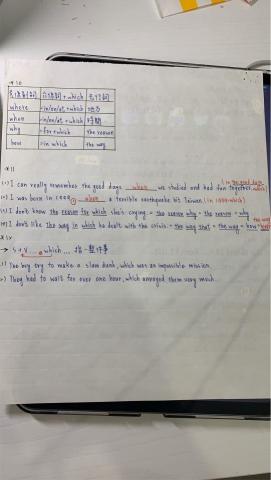 ※10
關係副詞 介系詞+which 先行詞
where =in/on/at+which 地方
when =in/on/at+which 時間
why =for+which the reason
how =in which the way
※11
(in the good days
(1) I can really remember the good days when we studied and had fun together. which)
(2) I was born in 1999, when a terrible earthquake hit Taiwan. (in 1999 which)
(3) I don't know the reason for which she's crying. = the reason why = the reason = why
(4) I don't like the way in which he dealt with the crisis. = the way that = the way = how
※12
→ S+V..., which... 指一整件事
(1) The boy try to make a slam dunk, which was an impossible mission.
(2) They had to wait for over one hour, which annoyed them very much.